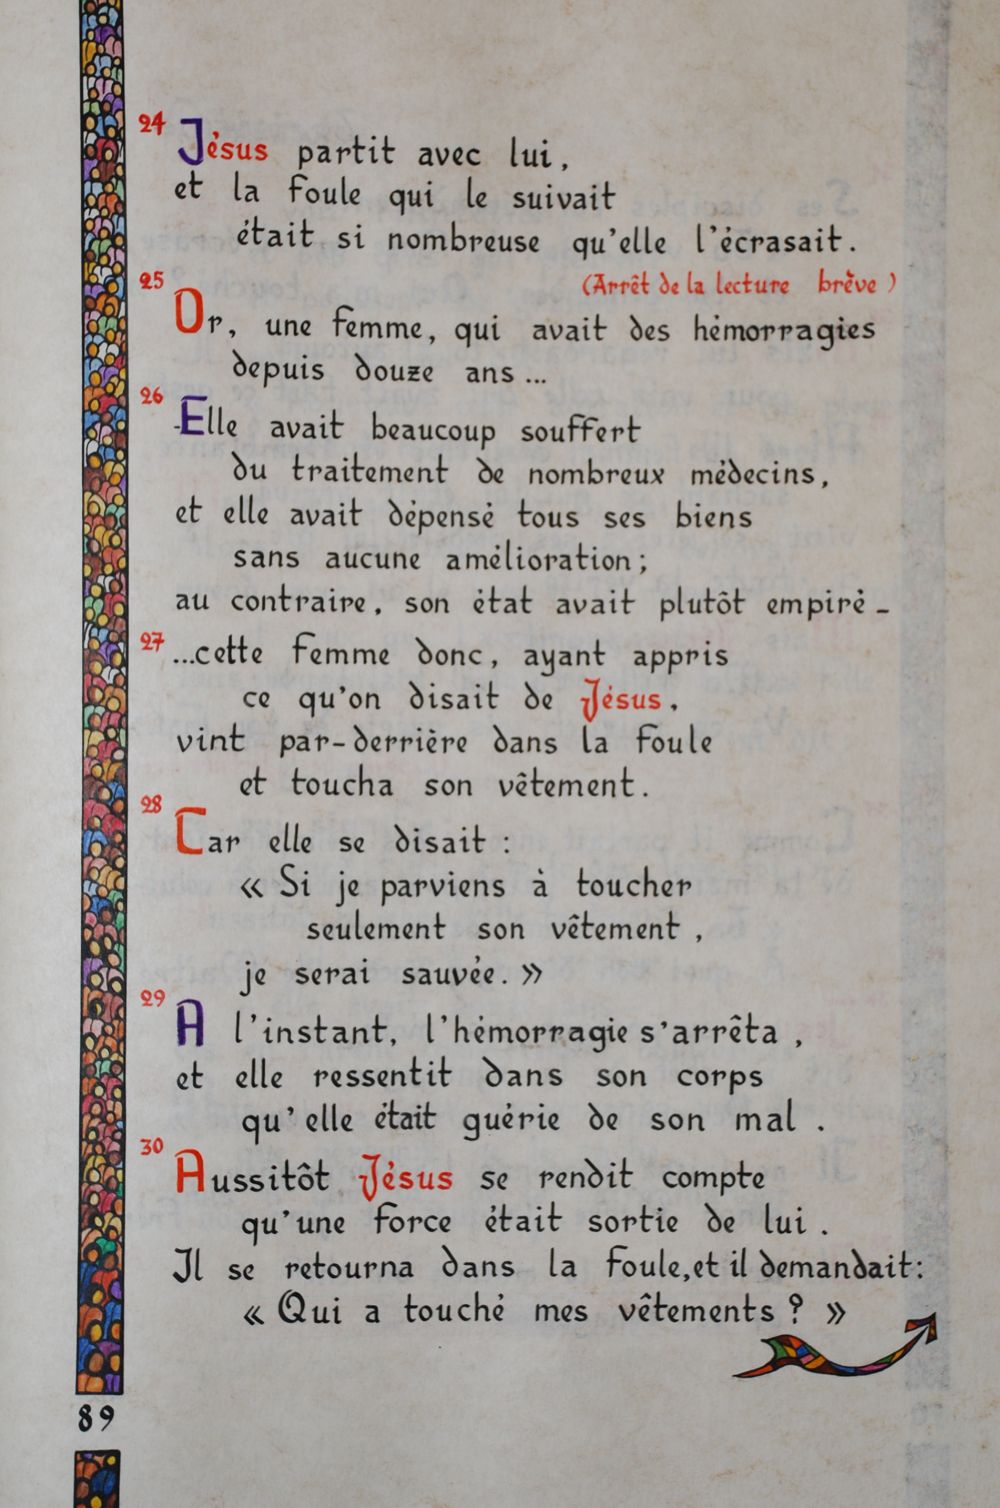 24 Jésus partit avec lui,
et la foule qui le suivait
était si nombreuse qu'elle l'écrasait.
(Arrêt de la lecture brève)
25 Or, une femme, qui avait des hémorragies
depuis douze ans...
26 -Elle avait beaucoup souffert
du traitement de nombreux médecins,
et elle avait dépensé tous ses biens
sans aucune amélioration;
au contraire, son état avait plutôt empiré -
27 ...cette femme donc, ayant appris
ce qu'on disait de Jésus,
vint par-derrière dans la foule
et toucha son vêtement.
28 Car elle se disait :
« Si je parviens à toucher
seulement son vêtement,
je serai sauvée. »
29 A l'instant, l'hémorragie s'arrêta,
et elle ressentit dans son corps
qu'elle était guérie de son mal.
30 Aussitôt Jésus se rendit compte
qu'une force était sortie de lui.
Il se retourna dans la foule, et il demandait:
« Qui a touché mes vêtements ? »
89